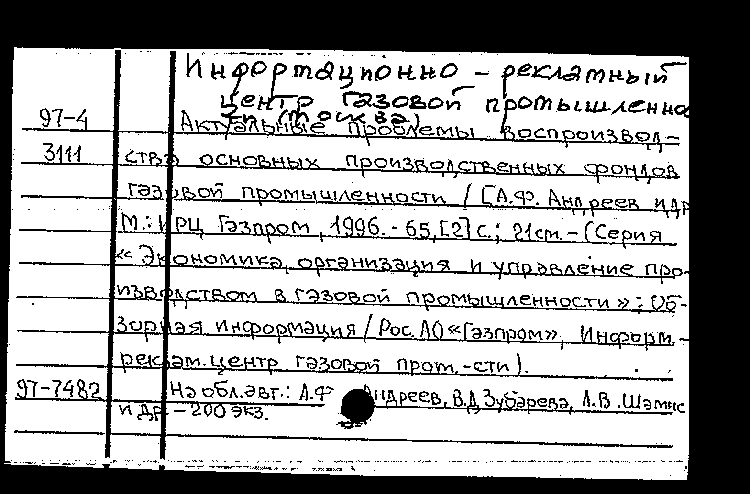 Информационно - рекламный
центр газовой промышленно
97-4 Актуальные проблемы воспроизвод-
3111 ства основных производственных фондов
газовой промышленности / [А.Ф. Андреев и др
М.: ИРЦ Газпром, 1996. - 65,[2] с.; 21см. - (Серия
«Экономика, организация и управление про-
изводством в газовой промышленности»: Об-
зорная информация / Рос. АО «Газпром», Информ.-
реклам. центр газовой пром.-сти).
97-7482 На обл. авт.: А.Ф. Андреев, В.Д. Зубарева, А.В. Шамис
и др. - 200 экз.